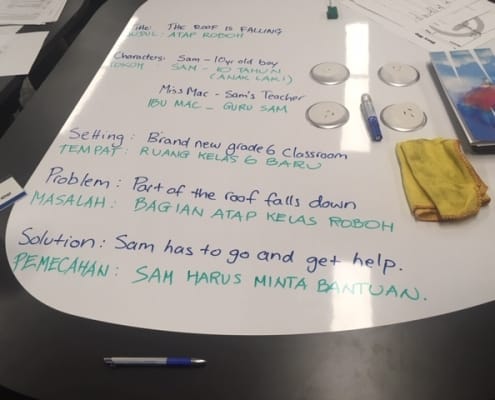 Title: THE ROOF IS FALLING
JUDUL: ATAP ROBOH
Characters: Sam - 10yr old boy
TOKOH SAM - 10 TAHUN
(ANAK LAKI)
Miss Mac - Sam's Teacher
IBU MAC - GURU SAM
Setting: Brand new grade 6 Classroom
TEMPAT: RUANG KELAS 6 BARU
Problem: Part of the roof falls down
MASALAH: BAGIAN ATAP KELAS ROBOH
Solution: Sam has to go and get help.
PEMECAHAN: SAM HARUS MINTA BANTUAN.